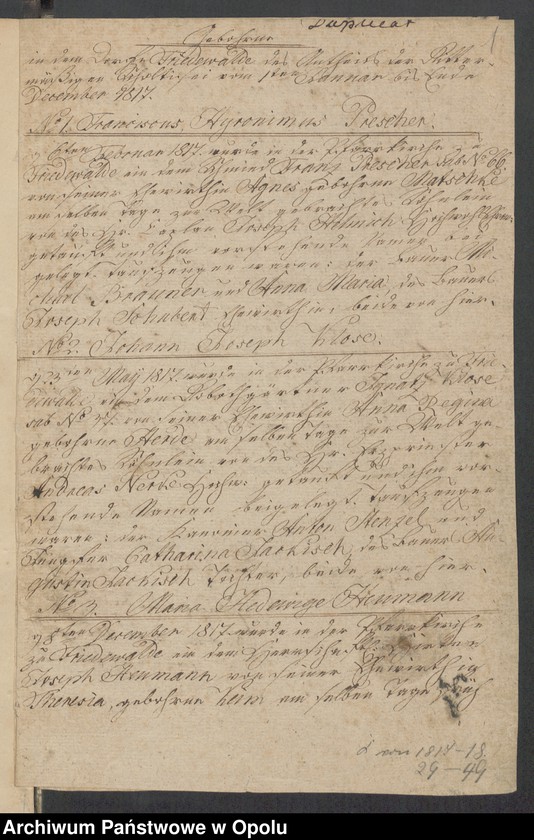 Duplicat
1
Gebohrne
in dem Dorfe Friedewalde des Antheils der Ritter-
mäßigen Scholtisei vom 1ten Januar bis Ende
December 1817.
No 1. Franciscus, Hyronimus Prescher.
Februar 1817. wurde in der Pfarrkirche zu
Friedewalde ein dem Schmied Franz Prescher sub No 66
von seiner Ehewirthin Agnes gebohrne Matschke
am selben Tage zur Welt gebrachtes Söhnlein
von des Hr. Caplan Joseph
getauft und ihm vorstehende Namen bei-
gelegt. Taufzeugen waren: der Bauer Mi-
chael Brauner und Anna Maria, des Bauers
Joseph Schubert Ehewirthin, beide von hier.
No 2. Johann Joseph Klose.
May 1817. wurde in der Pfarrkirche zu Frie-
dewalde ein dem Ignatz Klose
sub No von seiner Ehewirthin Anna Regina
gebohrne am selben Tage zur Welt ge-
brachtes Söhnlein von des Hr. Erzpriester
Andreas Hochw: getauft und ihm vor-
stehende Namen beigelegt. Taufzeugen
waren: der Anton Menzel und
Jungfer Catharina Jackisch, des Bauer Au-
gustin Jackisch Tochter, beide von hier.
No 3. Maria Hedewige Heumann
December 1817. wurde in der Pfarrkirche
zu Friedewalde ein dem
Joseph Heumann von seiner Ehewirthin
Theresia, gebohrne am selben Tage früh
von 1817-18
29-49
Archiwum Państwowe w Opolu